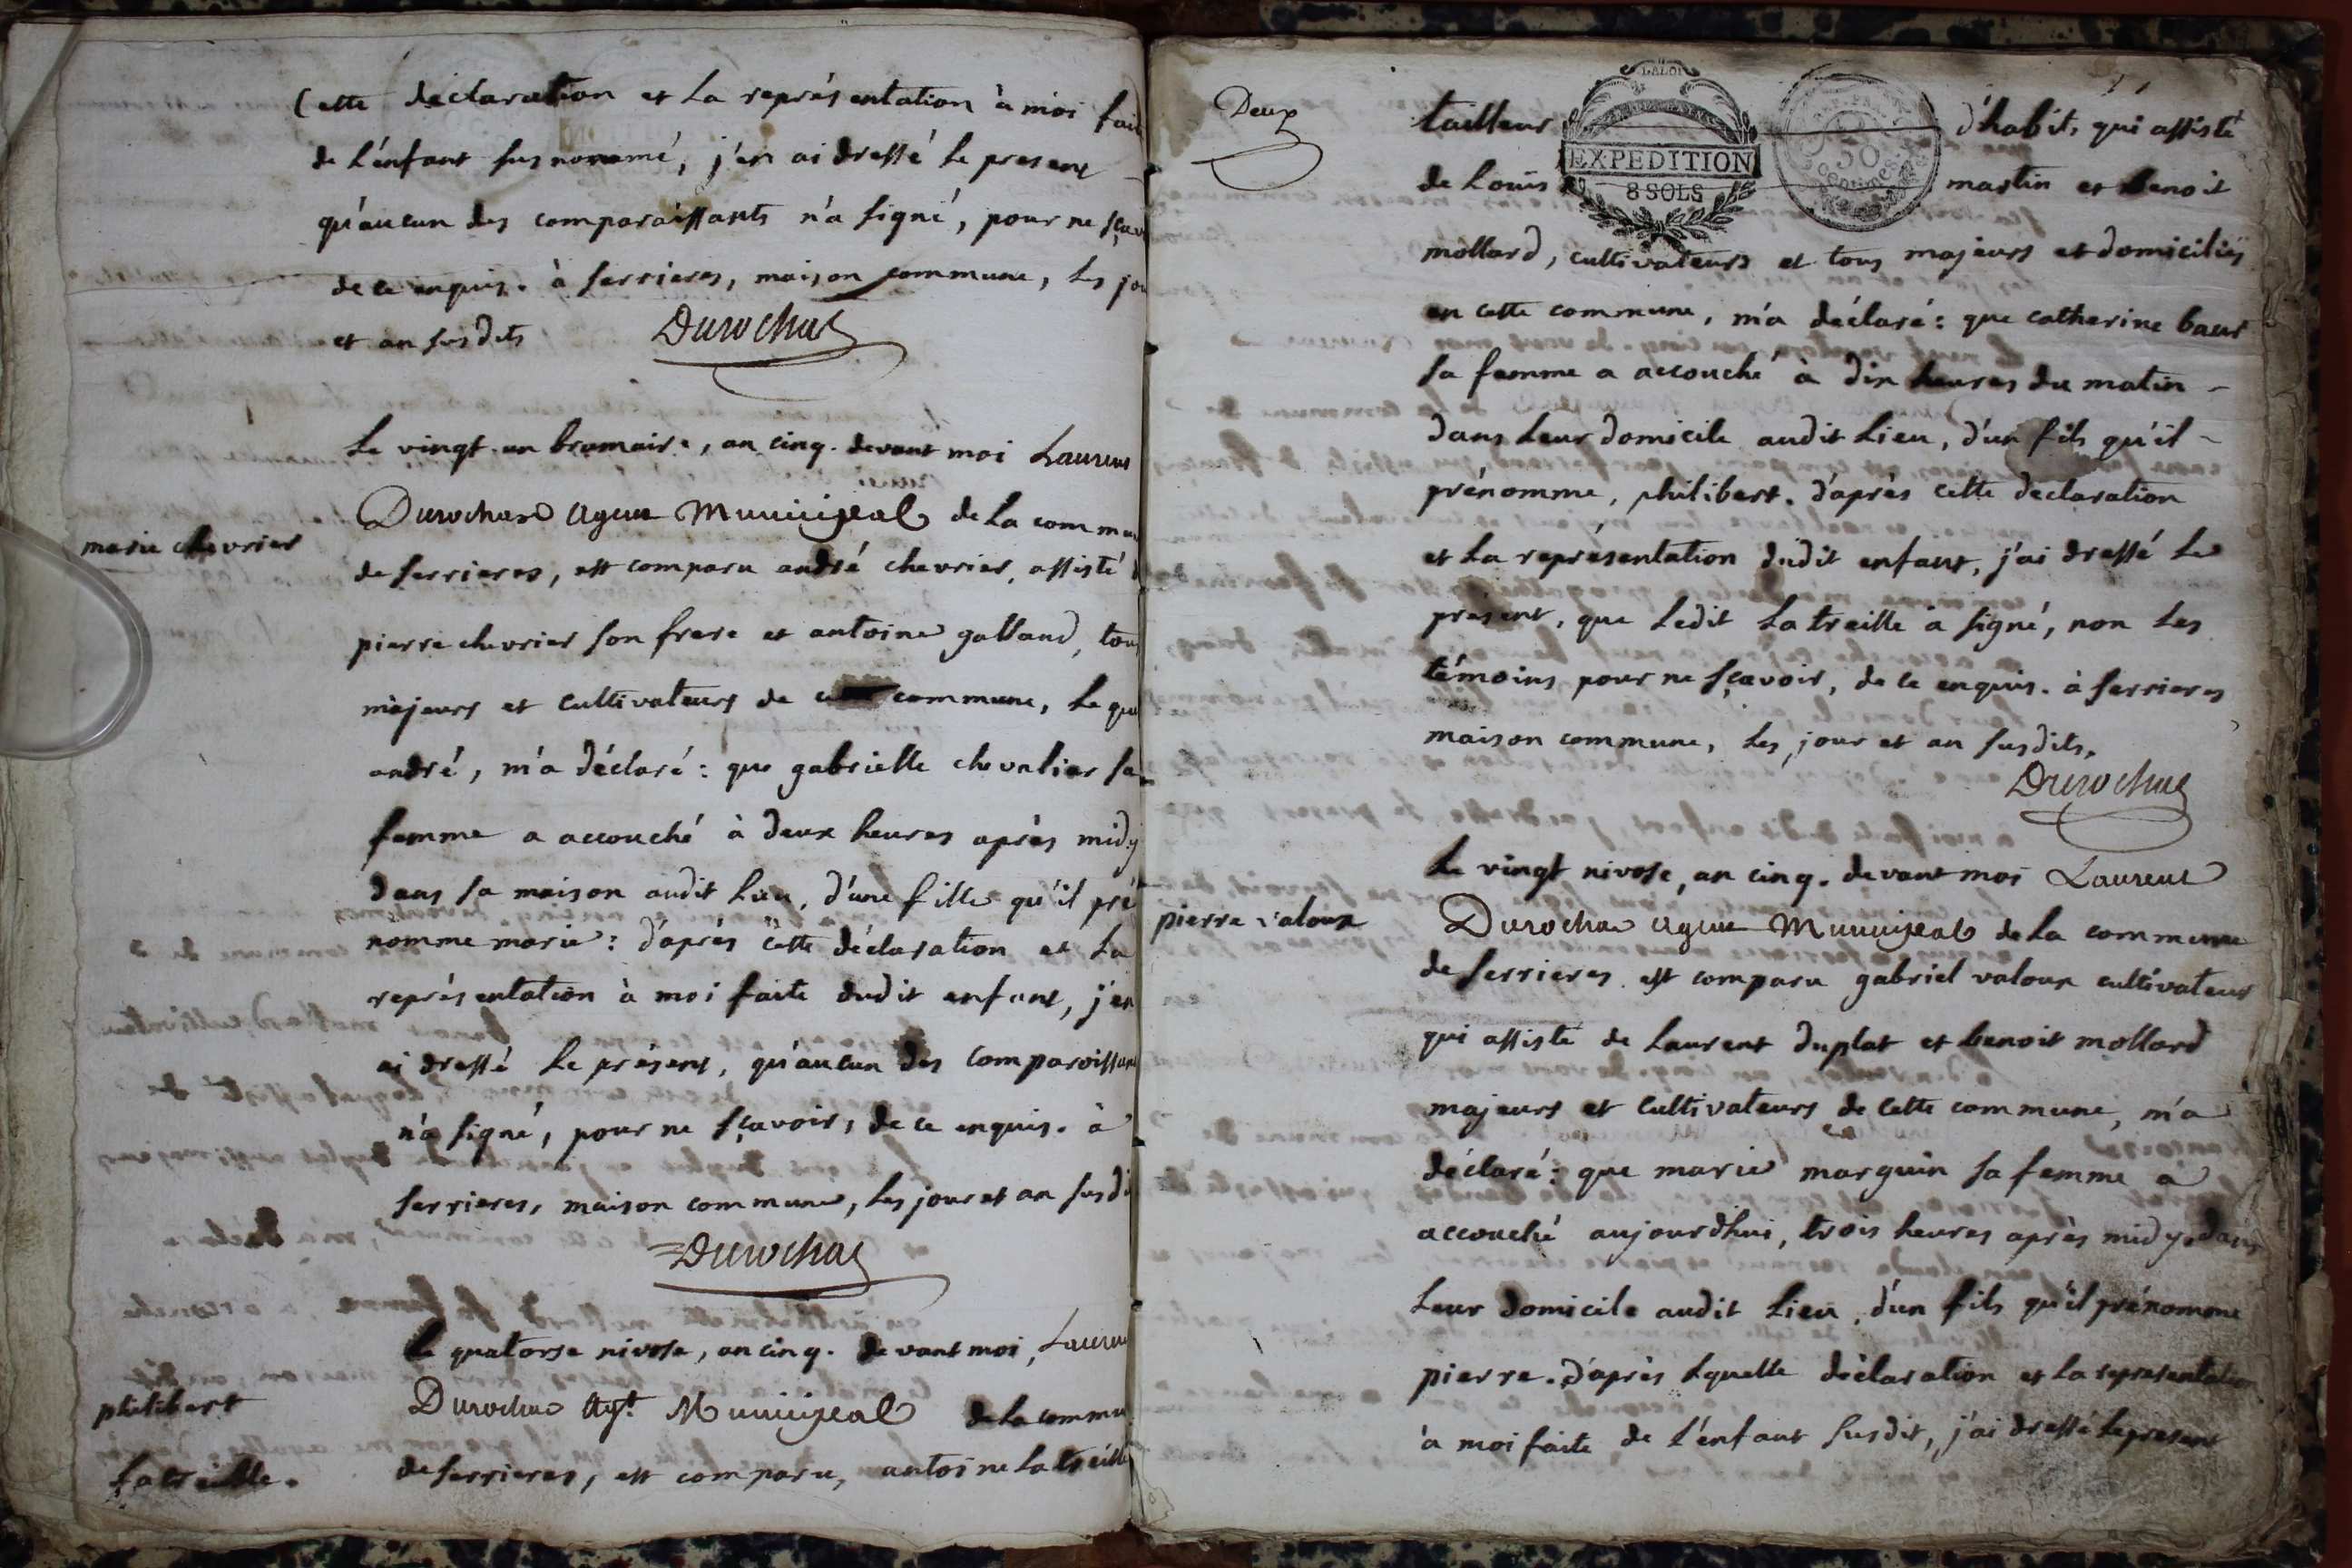 Cette déclaration et La représentation à moi fait
de L'énfant susnommé, j'en ai dressé Le present
qu'aucun des comparaissants n'a signé, pour ne sçav
de ce enquis. à serrieres, maison commune, Les jou
et an susdits Durochat
Le vingt-un brumaire, an cinq. devant moi Laurent
Durochat Agent Municipal de La commu
marie chevrier
de serrieres, est comparu andré chevrier, assisté d
pierre chevrier son frere et antoine galland, tous
majeurs et cultivateurs de cette commune, Le que
andré, m'a déclaré: que gabrielle chevalier sa
femme a accouché à deux heures après midy
dans sa maison audit Lieu, d'une fille qu'il pré
nomme marie: d'après cette déclaration et La
représentation à moi faite dudit enfant, j'en
ai dressé Le présent, qu'aucun des comparoissans
n'a signé, pour ne sçavoir, de ce enquis. à
serrieres, maison commune, Les jour et an susdi
Durochat
Le quatorse nivose, an cinq. devant moi, Laurent
philibert
Latreille.
Durochat Agt. Municipal de La commu
de serrieres, est comparu, antoine Latreille
Deux
LA LOI
EXPEDITION
8 SOLS
50
Centimes
tailleur d'habit, qui assisté
de Louis martin et benoit
mollard, cultivateurs et tous majeurs et domiciliés
en cette commune, m'a déclaré: que catherine baur
sa femme a accouché à dix heures du matin -
dans Leur domicile audit Lieu, d'un fils qu'il -
prénomme, philibert. d'après cette declaration
et La représentation dudit enfant, j'ai dressé Le
présent, que Ledit Latreille a signé, non Les
témoins pour ne sçavoir, de ce enquis. à serrieres
maison commune, Les jour et an susdits.
Durochat
Le vingt nivose, an cinq. devant moi Laurent
pierre valoux
Durochat Agent Municipal de La commune
de serrieres est comparu gabriel valoux cultivateur
qui assisté de Laurent duplat et benoit mollard
majeurs et cultivateurs de cette commune, m'a
déclaré: que marie marguin sa femme a
accouché aujourdhui, trois heures après midy, dans
Leur domicile audit Lieu, d'un fils qu'il prénomme
pierre. d'après Lquelle déclaration et La representation
à moi faite de L'enfant susdit, j'ai dressé Le présent